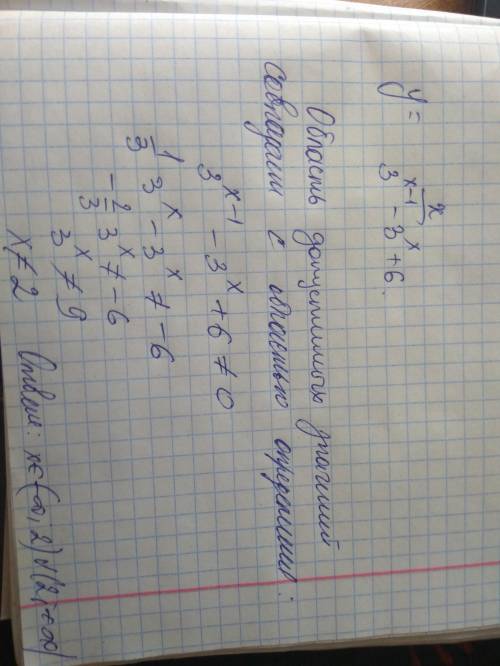 y = x / (3^(x-1) - 3^x + 6).
Область допустимых значений
совпадает с областью определения:
3^(x-1) - 3^x + 6 ≠ 0
1/3 3^x - 3^x ≠ -6
-2/3 3^x ≠ -6
3^x ≠ 9
x ≠ 2 Ответ: x∈(-∞; 2)∪(2; +∞)